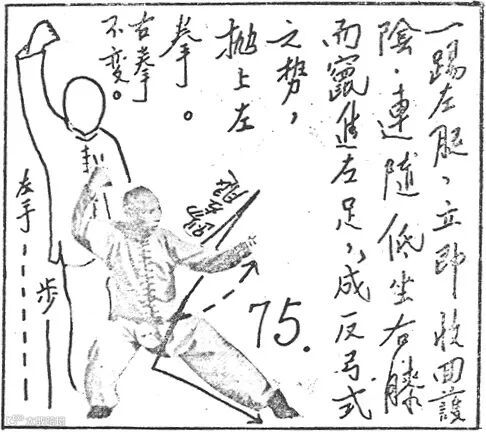 一踢左腿，立即收回護
陰，連隨低坐右膝
而竄進左足，成反弓式
之勢，
拋上左
拳。
右拳
不變。
左手
步
踢左腿
75.